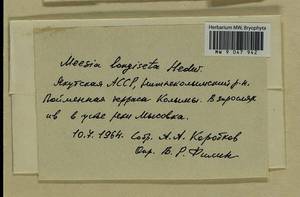 Herbarium MW, Bryophyta
MW 9 047 942
Meesia longiseta Hedw.
Якутская АССР, Нижнеколымский р-н.
Пойменная терраса Колымы. В зарослях
ив в устье реки Мысовка.
10.V.1964. Собр. А.А. Коробков
Опр. В.Р. Филин